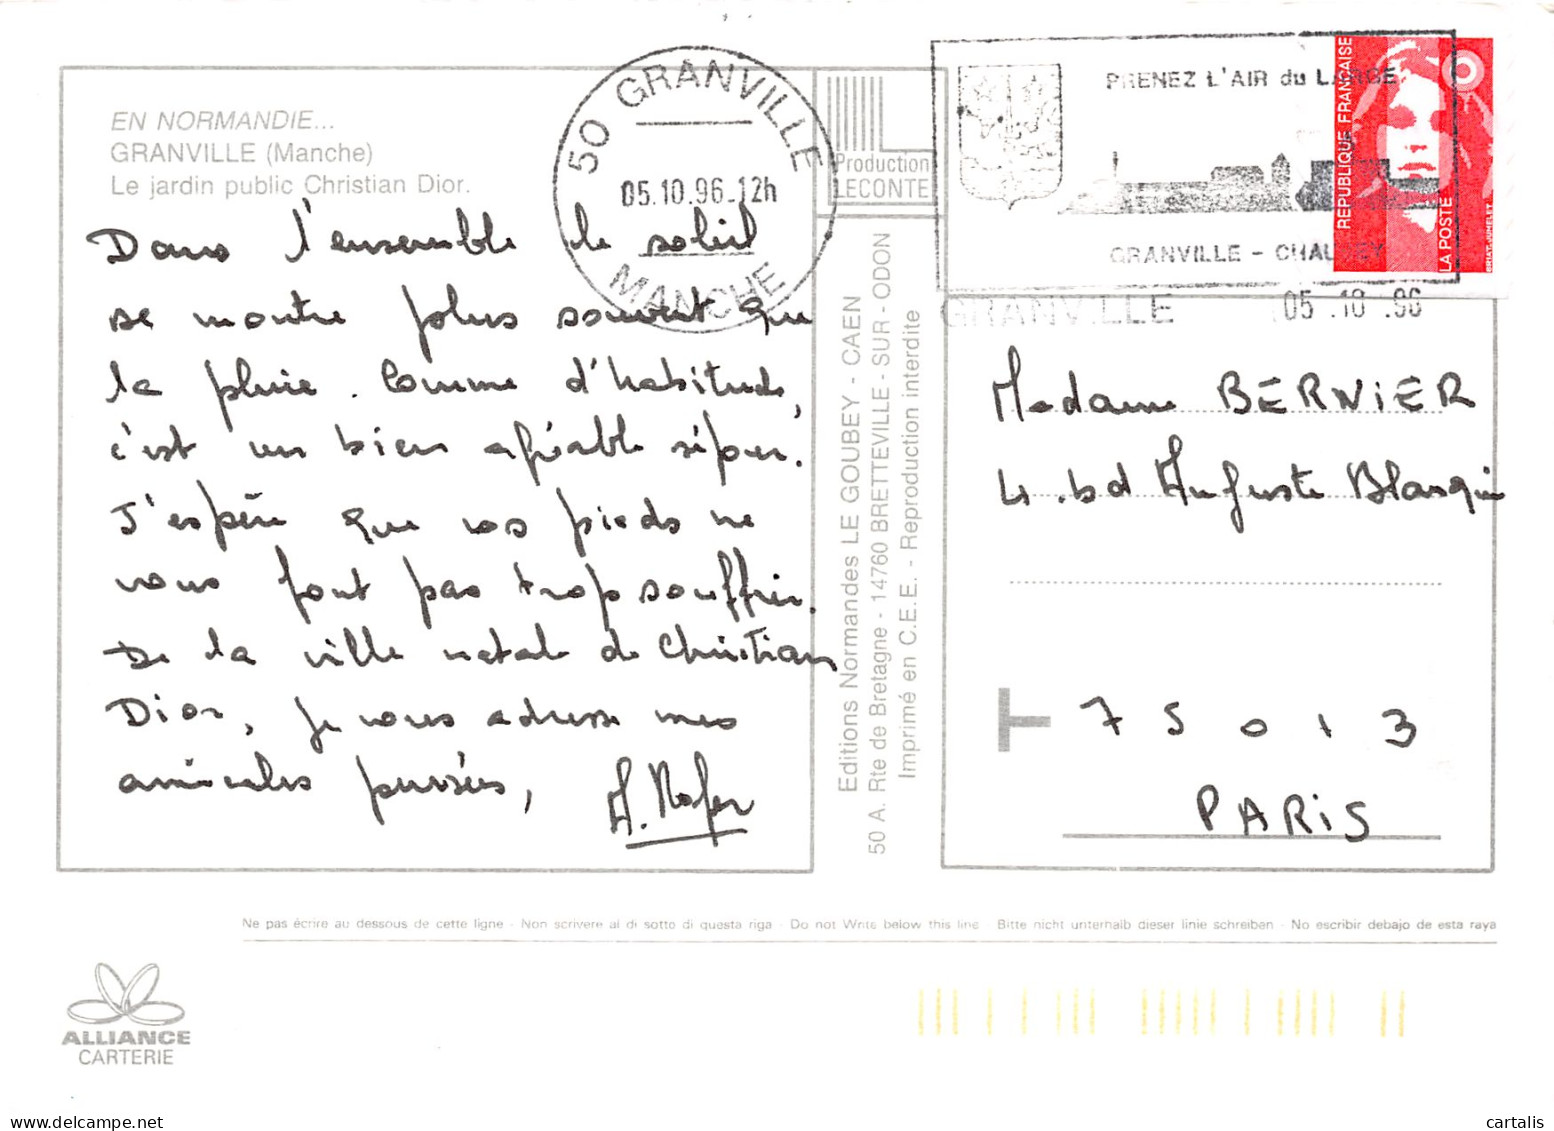 EN NORMANDIE...
GRANVILLE (Manche)
Le jardin public Christian Dior.
Dans l'ensemble le soleil
se montre plus souvent que
la pluie. Comme d'habitude,
c'est un bien agréable séjour.
J'espère que vos pieds ne
vous font pas trop souffrir.
De la ville natale de Christian
Dior, je vous adresse mes
amicales pensées,
50 GRANVILLE
05.10.96.12h
MANCHE
Production
LECONTE
Editions Normandes LE GOUBEY - CAEN
50 A. Rte de Bretagne - 14760 BRETTEVILLE - SUR - ODON
Imprimé en C.E.E. - Reproduction interdite
PRENEZ L'AIR du LARGE
GRANVILLE - CHAUSEY
GRANVILLE 05.10.96
REPUBLIQUE FRANÇAISE
LA POSTE
Madame BERNIER
4 bd Auguste Blanqui
T 75013
PARIS
Ne pas écrire au dessous de cette ligne - Non scrivere al di sotto di questa riga - Do not Write below this line - Bitte nicht unterhalb dieser linie schreiben - No escribir debajo de esta raya
ALLIANCE
CARTERIE
cartalis